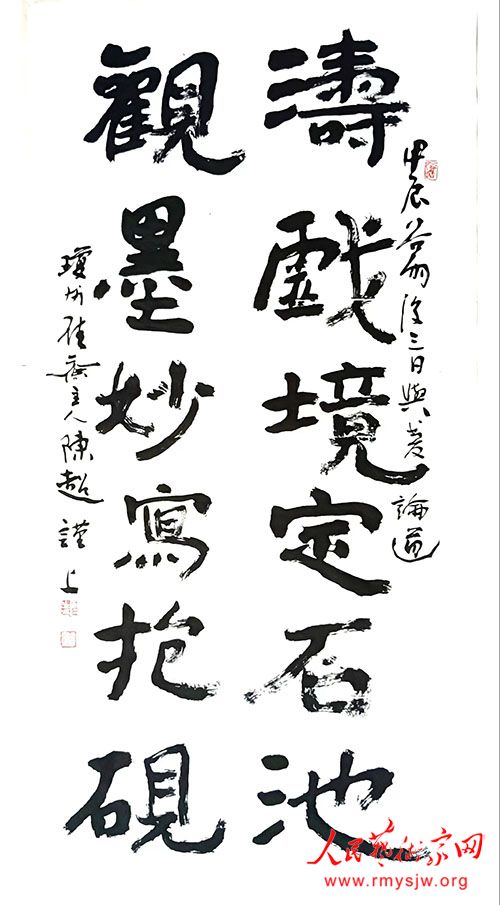 甲辰谷雨後三日與論道
濤戲境定石池
觀墨妙寫抱硯
瓊州齋主人陳超謹上
人民藝術家网
www.rmysjw.org